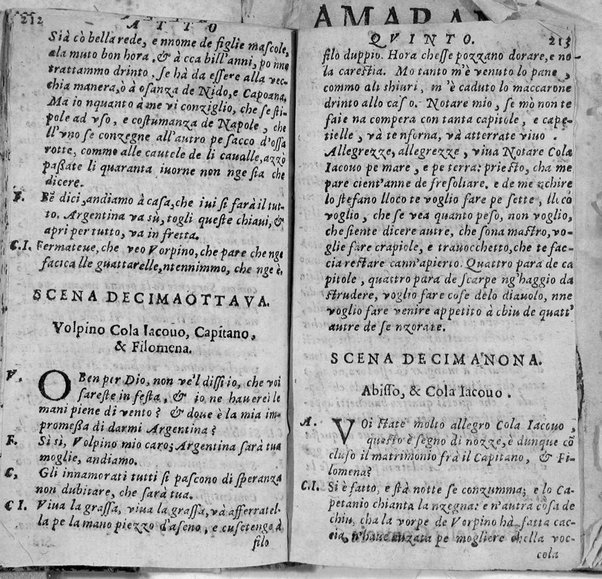 AMARAN
212 ATTO
Sià cò bella rede, e nnome de figlie mascole,
ala muto bon hora, & à cca bill'anni, po nne
trattammo drinto. Se hà da essere alla vec
chia manera, ò à osanza de Nido, e Capoana.
Ma io nquanto à me vi conziglio, che se sti-
pole ad vso, e costumanza de Napole, che
ll'vno se conzegne all'autro pe sacco d'ossa
rotte, comme alle cautele de li caualle, azzò
passate li quaranta iuorne non nge sia che
dicere.
F. Bẽ dici, andiamo à casa, che iui si farà il tut-
to. Argentina va sù, togli queste chiaui, &
apri per tutto, va in fretta.
C.I. Fermateue, che veo Vorpino, che pare che nge
facica lle guattarelle, ntennimmo, che nge è.
SCENA DECIMAOTTAVA.
Volpino Cola Iacouo, Capitano,
& Filomena.
V. O Ben per Dio, non ve'l dissi io, che voi
sareste in festa, & io ne hauerei le
mani piene di vento? & doue è la mia im-
promessa di darmi Argentina?
F. Sì sì, Volpino mio caro; Argentina sarà tua
moglie, andiamo.
C. Gli innamorati tutti si pascono di speranza
non dubitare, che sarà tua.
C I. Viua la grassa, viua la grassa, và afferratel-
la pe la mano piezzo d'aseno, e cusetenge à
filo
QVINTO. 213
filo duppio. Hora chesse pozzano dorare, e no
la carestia. Mo tanto m'è venuto lo pane,
commo ali thiuri, m'è caduto lo maccarone
drinto allo caso. Notare mio, se mò non te
faie na compera con tanta capitole, e cape-
tielle, và te nforna, và atterrate viuo.
Allegrezze, allegrezze, viua Notare Cola
Iacouo pe mare, e pe terra: priesto, cha me
pare cient'anne de fresoliare. e de me nchire
lo stefano lloco te voglio fare pe sette, lloco
voglio, che se vea quanto peso, non voglio,
che siente dicere autre, che sona mastro, vo-
glie fare crapiole, e trauocchetto, che te fac-
cia restare cann'apierto. Quattro para de ca
pitole, quattro para de scarpe ng'haggio da
strudere, voglio fare cose delo diauolo, nne
voglio fare venire appetito à chiu de quatt'
autre de se nzorate.
SCENA DECIMANONA.
Abisso, & Cola Iacouo.
A. VOi state molto allegro Cola Iacouo,
questo è segno di nozze, è dunque cõ
cluso il matrimonio frà il Capitano, & Fi-
lomena?
C.I. Sì è fatto, e stà notte se conzumma; e lo Ca-
petanio chianta la nzegna: e n'autra cosa de
chiu, cha la vorpe de Vorpino hà fatta cac-
cia, pe mogliere chella voc-
cola